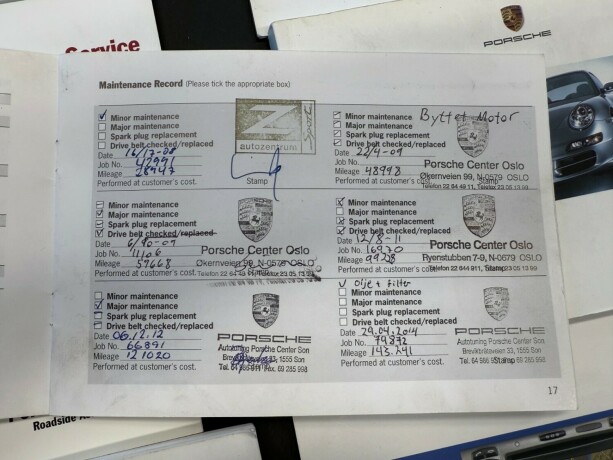 Service
PORSCHE
Maintenance Record (Please tick the appropriate box)
Minor maintenance
Major maintenance
Spark plug replacement
Drive belt checked/replaced
Date
Job No. 42991
Mileage 28447
Performed at customer's cost.
Stamp
Z
autozentrum
Minor maintenance
Major maintenance
Spark plug replacement
Drive belt checked/replaced
Byttet Motor
Date 22/4-09
Job No.
Mileage 48998
Performed at customer's cost.
Porsche Center Oslo
Økernveien 99, N-0579 OSLO
Telefon 22 64 49 11, Telefax 23 05 13 99
Stamp
Minor maintenance
Major maintenance
Spark plug replacement
Drive belt checked/replaced
Date
Job No. 11106
Mileage 57668
Performed at customer's cost.
Porsche Center Oslo
Økernveien 99, N-0579 OSLO
Telefon 22 64 49 11, Telefax 23 05 13 99
Minor maintenance
Major maintenance
Spark plug replacement
Drive belt checked/replaced
Date 12/8-11
Job No. 16970
Mileage 99228
Performed at customer's cost.
Porsche Center Oslo
Ryenstubben 7-9, N-0579 OSLO
Stamp
Minor maintenance
Major maintenance
Spark plug replacement
Drive belt checked/replaced
Date 06.12.12
Job No. 66891
Mileage 121020
Performed at customer's cost.
PORSCHE
Autoturing Porsche Center Son
Brevikbråteveien 33, 1555 Son
Fax. 69 285 998
Olje + filter
Minor maintenance
Major maintenance
Spark plug replacement
Drive belt checked/replaced
Date 29.04.2014
Job No. 79872
Mileage 143.241
Performed at customer's cost.
PORSCHE
Autoturing Porsche Center Son
Brevikbråteveien 33, 1555 Son
Stamp Fax. 69 285 998
17
Roadside